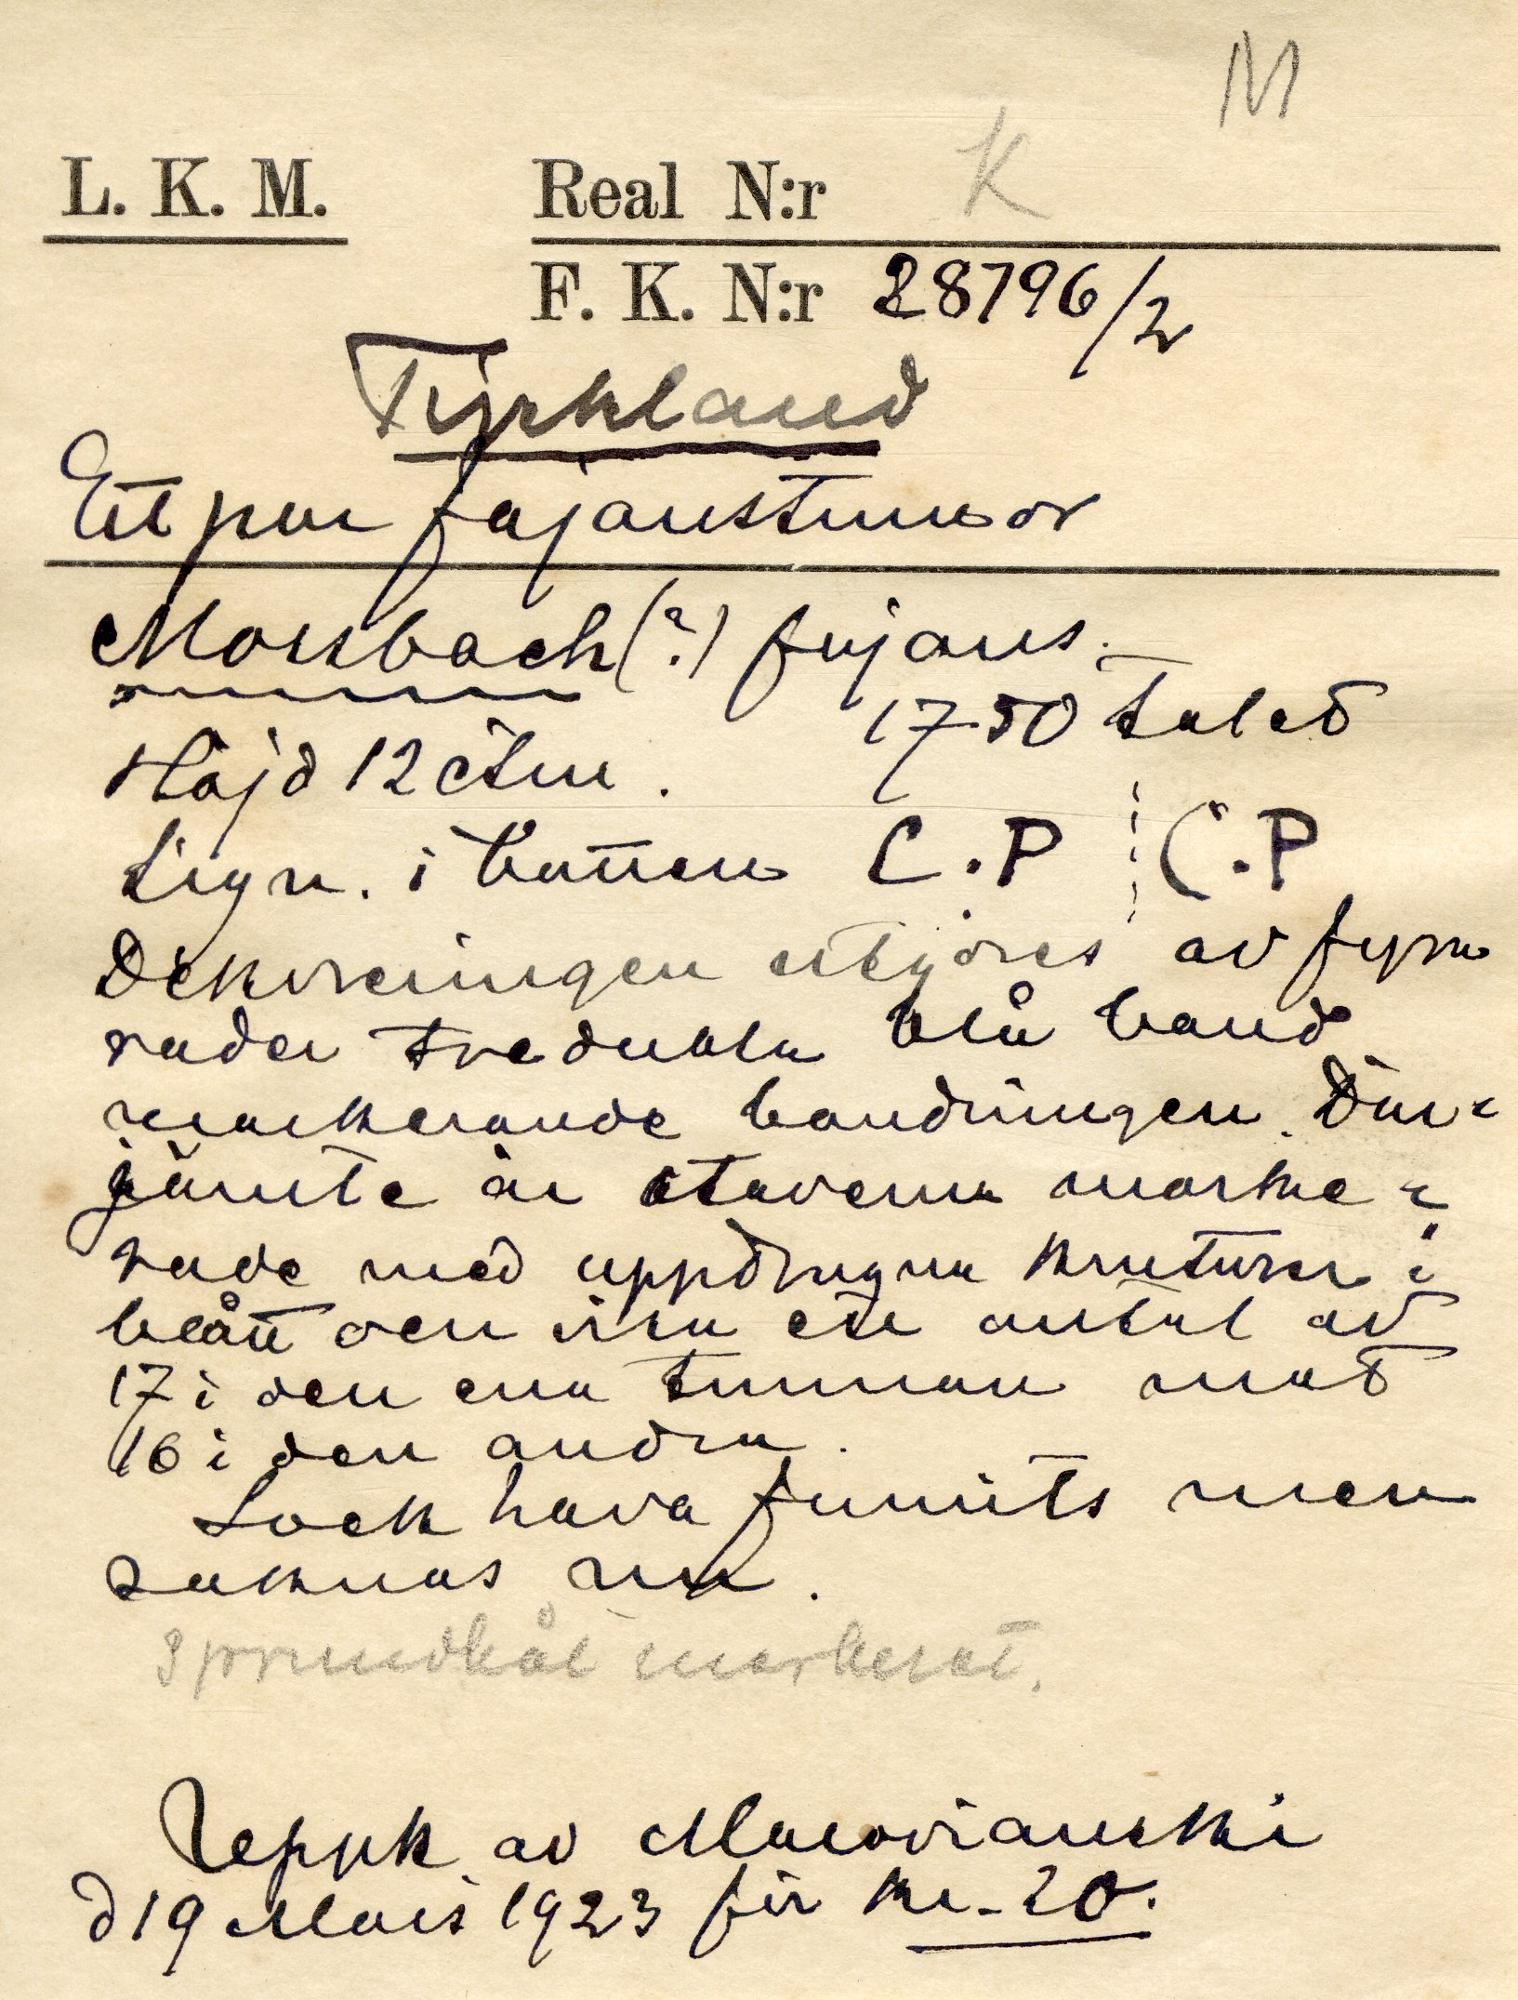 M
K
L. K. M. Real N:r
F. K. N:r 28796/2
Tyskland
Ett par fajanstunnor
Mosbach (?) fajans.
1750 talet
Höjd 12 ctm.
Sign. i botten C.P C.P
Dekoreringen utgöres av fyra
rader tredubbla blå band
markerande bandningen. Där-
jämte är stavarna marke-
rade med uppdragna konturer i
blått och visa ett antal av
17 i den ena tunnan mot
16 i den andra.
Lock hava funnits men
saknas nu.
Sprundhål markerat.
Uppk av Macovianski
d 19 Mars 1923 för kr. 20.